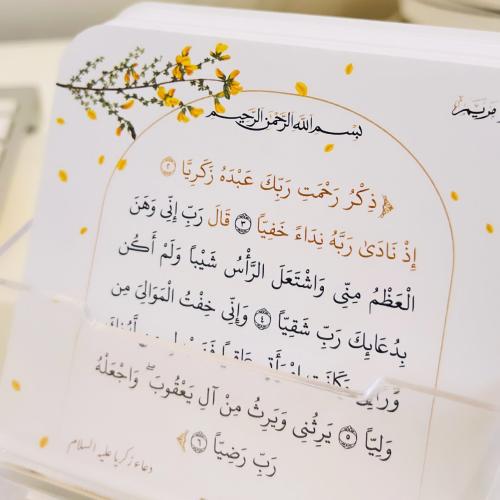 مريم
بسم الله الرحمن الرحيم
﴿ذِكْرُ رَحْمَتِ رَبِّكَ عَبْدَهُ زَكَرِيَّا ٢
إِذْ نَادَىٰ رَبَّهُ نِدَاءً خَفِيّاً ٣ قَالَ رَبِّ إِنِّي وَهَنَ
الْعَظْمُ مِنِّي وَاشْتَعَلَ الرَّأْسُ شَيْباً وَلَمْ أَكُن
بِدُعَائِكَ رَبِّ شَقِيّاً ٤ وَإِنِّي خِفْتُ الْمَوَالِيَ مِن
وَلِيّاً ٥ يَرِثُنِي وَيَرِثُ مِنْ آلِ يَعْقُوبَ ۖ وَاجْعَلْهُ
رَبِّ رَضِيّاً ٦﴾
دعاء زكريا عليه السلام